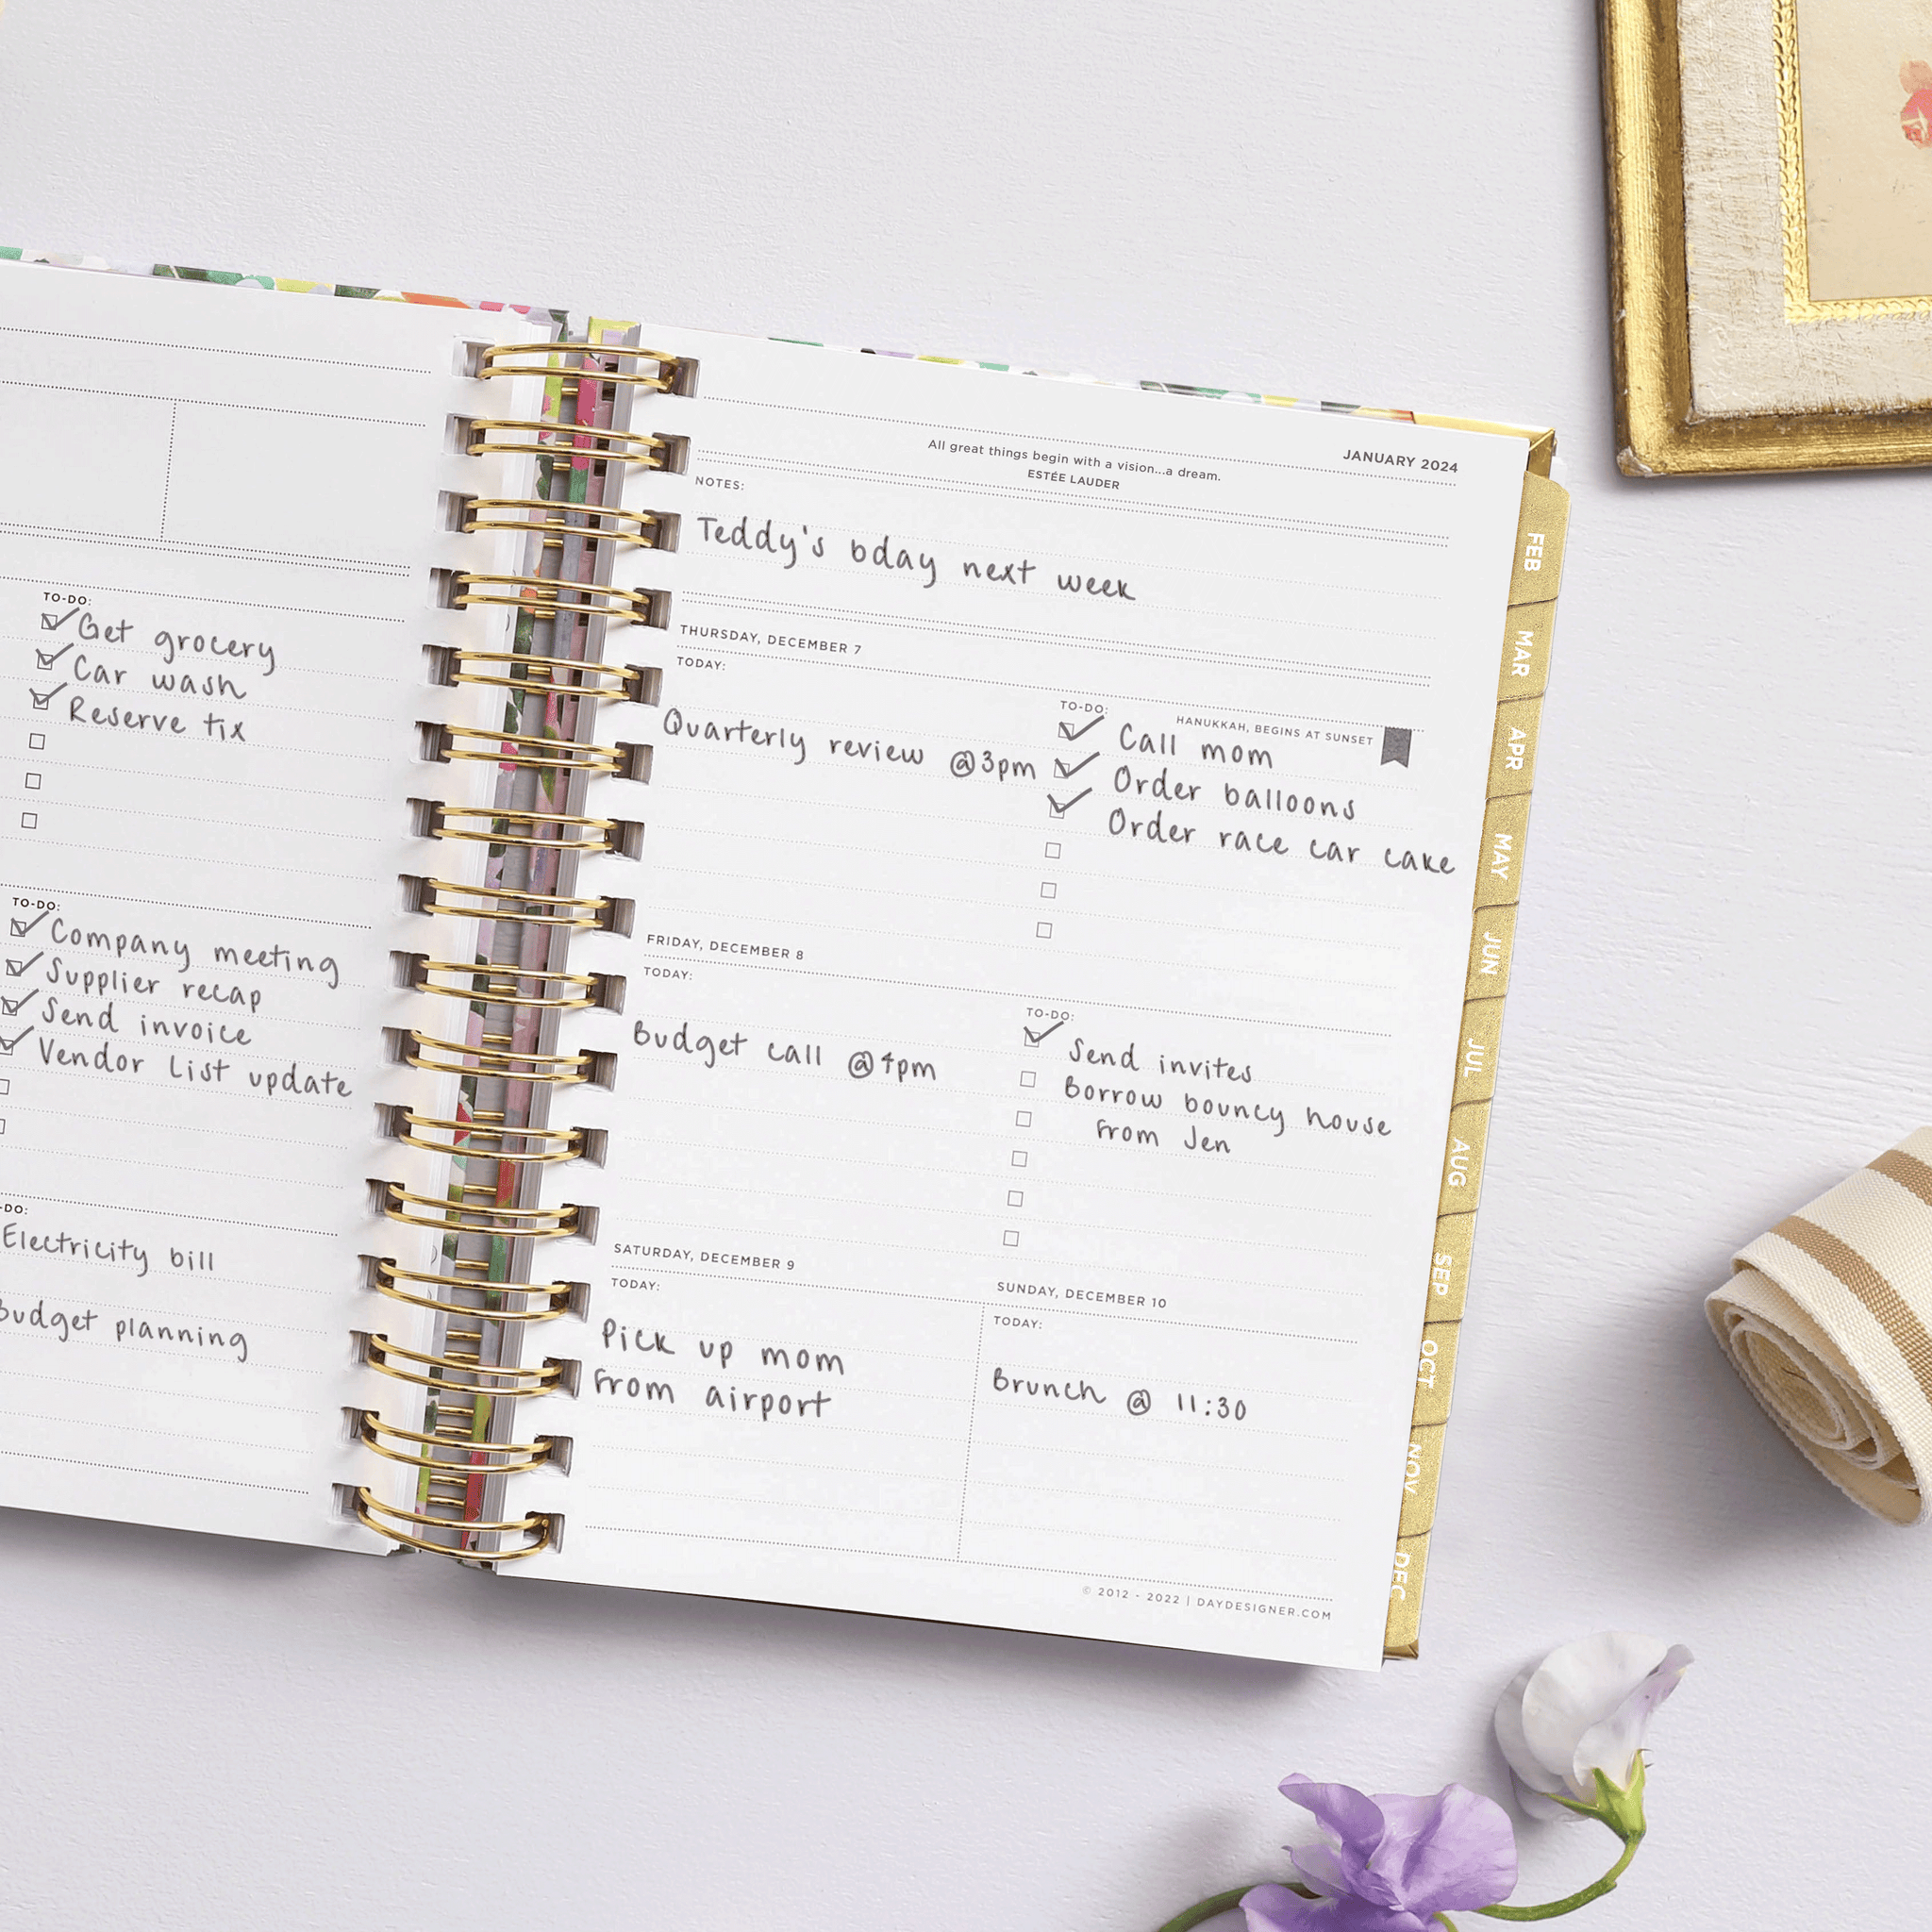 TO-DO:
Get grocery
Car wash
Reserve tix
TO-DO:
Company meeting
Supplier recap
Send invoice
Vendor list update
-DO:
Electricity bill
Budget planning
All great things begin with a vision...a dream.
ESTÉE LAUDER
JANUARY 2024
NOTES:
Teddy's bday next week
THURSDAY, DECEMBER 7
TODAY:
Quarterly review @3pm
TO-DO:
HANUKKAH, BEGINS AT SUNSET
Call mom
Order balloons
Order race car cake
FRIDAY, DECEMBER 8
TODAY:
Budget call @4pm
TO-DO:
Send invites
Borrow bouncy house
from Jen
SATURDAY, DECEMBER 9
TODAY:
Pick up mom
from airport
SUNDAY, DECEMBER 10
TODAY:
Brunch @ 11:30
© 2012 - 2022 | DAYDESIGNER.COM
FEB
MAR
APR
MAY
JUN
JUL
AUG
SEP
OCT
NOV
DEC